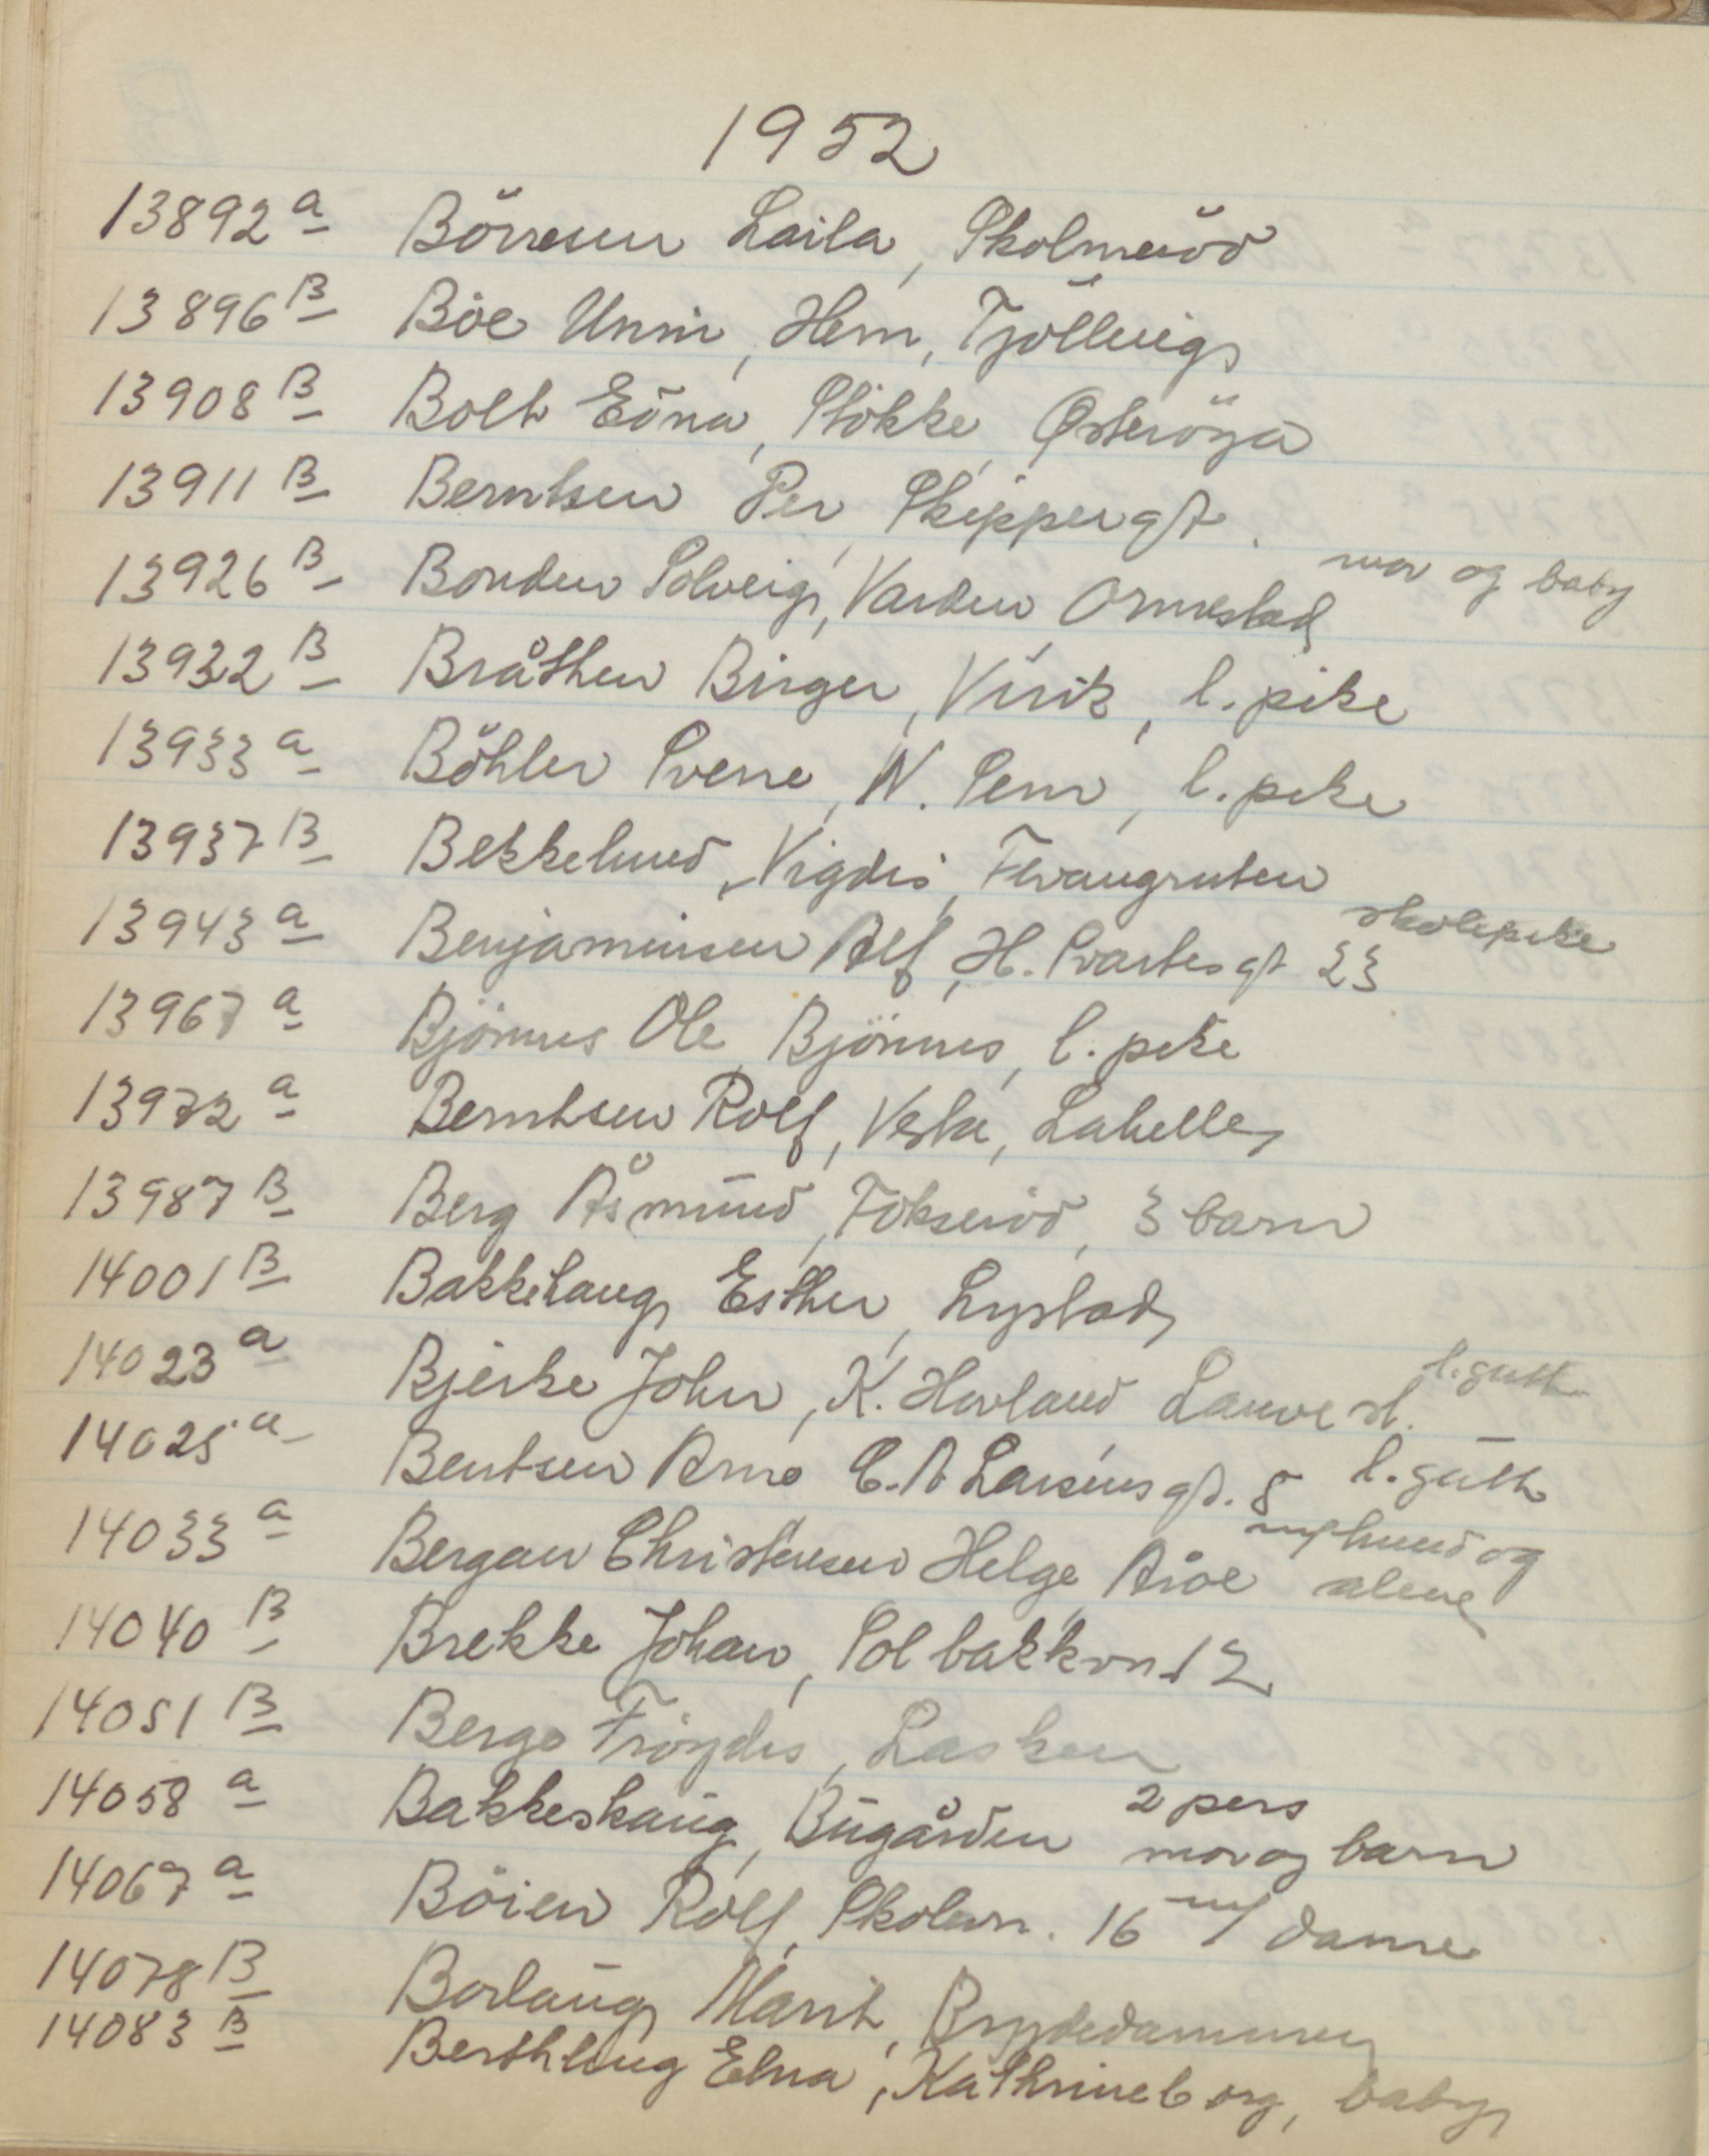 1952
13892 a Börresen Laila, Skolmeröd
13896 B Böe Unni, Hem, Tjöllings
13908 B Bolt Edna, Stokke, Østeröya
13911 B Berntsen Per, Skippergt.
13926 B Bonden Solveig, Varden Ormestad mor og baby
13932 B Bråthen Birger, Virik, l. pike
13933 a Böhler Sverre, N. Sem, l. pike
13937 B Bekkelund, Vigdis, Fevangruten
13943 a Benjaminsen Alf, H. Svartesgt 23 skolepike
13967 a Bjönnes Ole, Bjönnes, l. pike
13972 a Berntsen Rolf, Vesta, Lahelle
13987 B Berg Åsmund, Fokseröd, 3 barn
14001 B Bakkehaug Esther, Lystad
14023 a Bjerke John, K. Hovland Lauve st. l. gutt
14025 a Bentsen Arne C. A Larsens gt. 8 l. gutt
14033 a Bergan Christensen Helge Råöe m/hund og alene
14040 B Brekke Johan, Solbakkvn 12
14051 B Berge Fröydis, Lasken
14058 a Bakkeskaug, Bugården 2 pers mor og barn
14067 a Böien Rolf, Skolevn. 16 m/ dame
14078 B Borlaug Marit, Brydedammen
14083 B Berthling Elna, Kathrineborg, baby